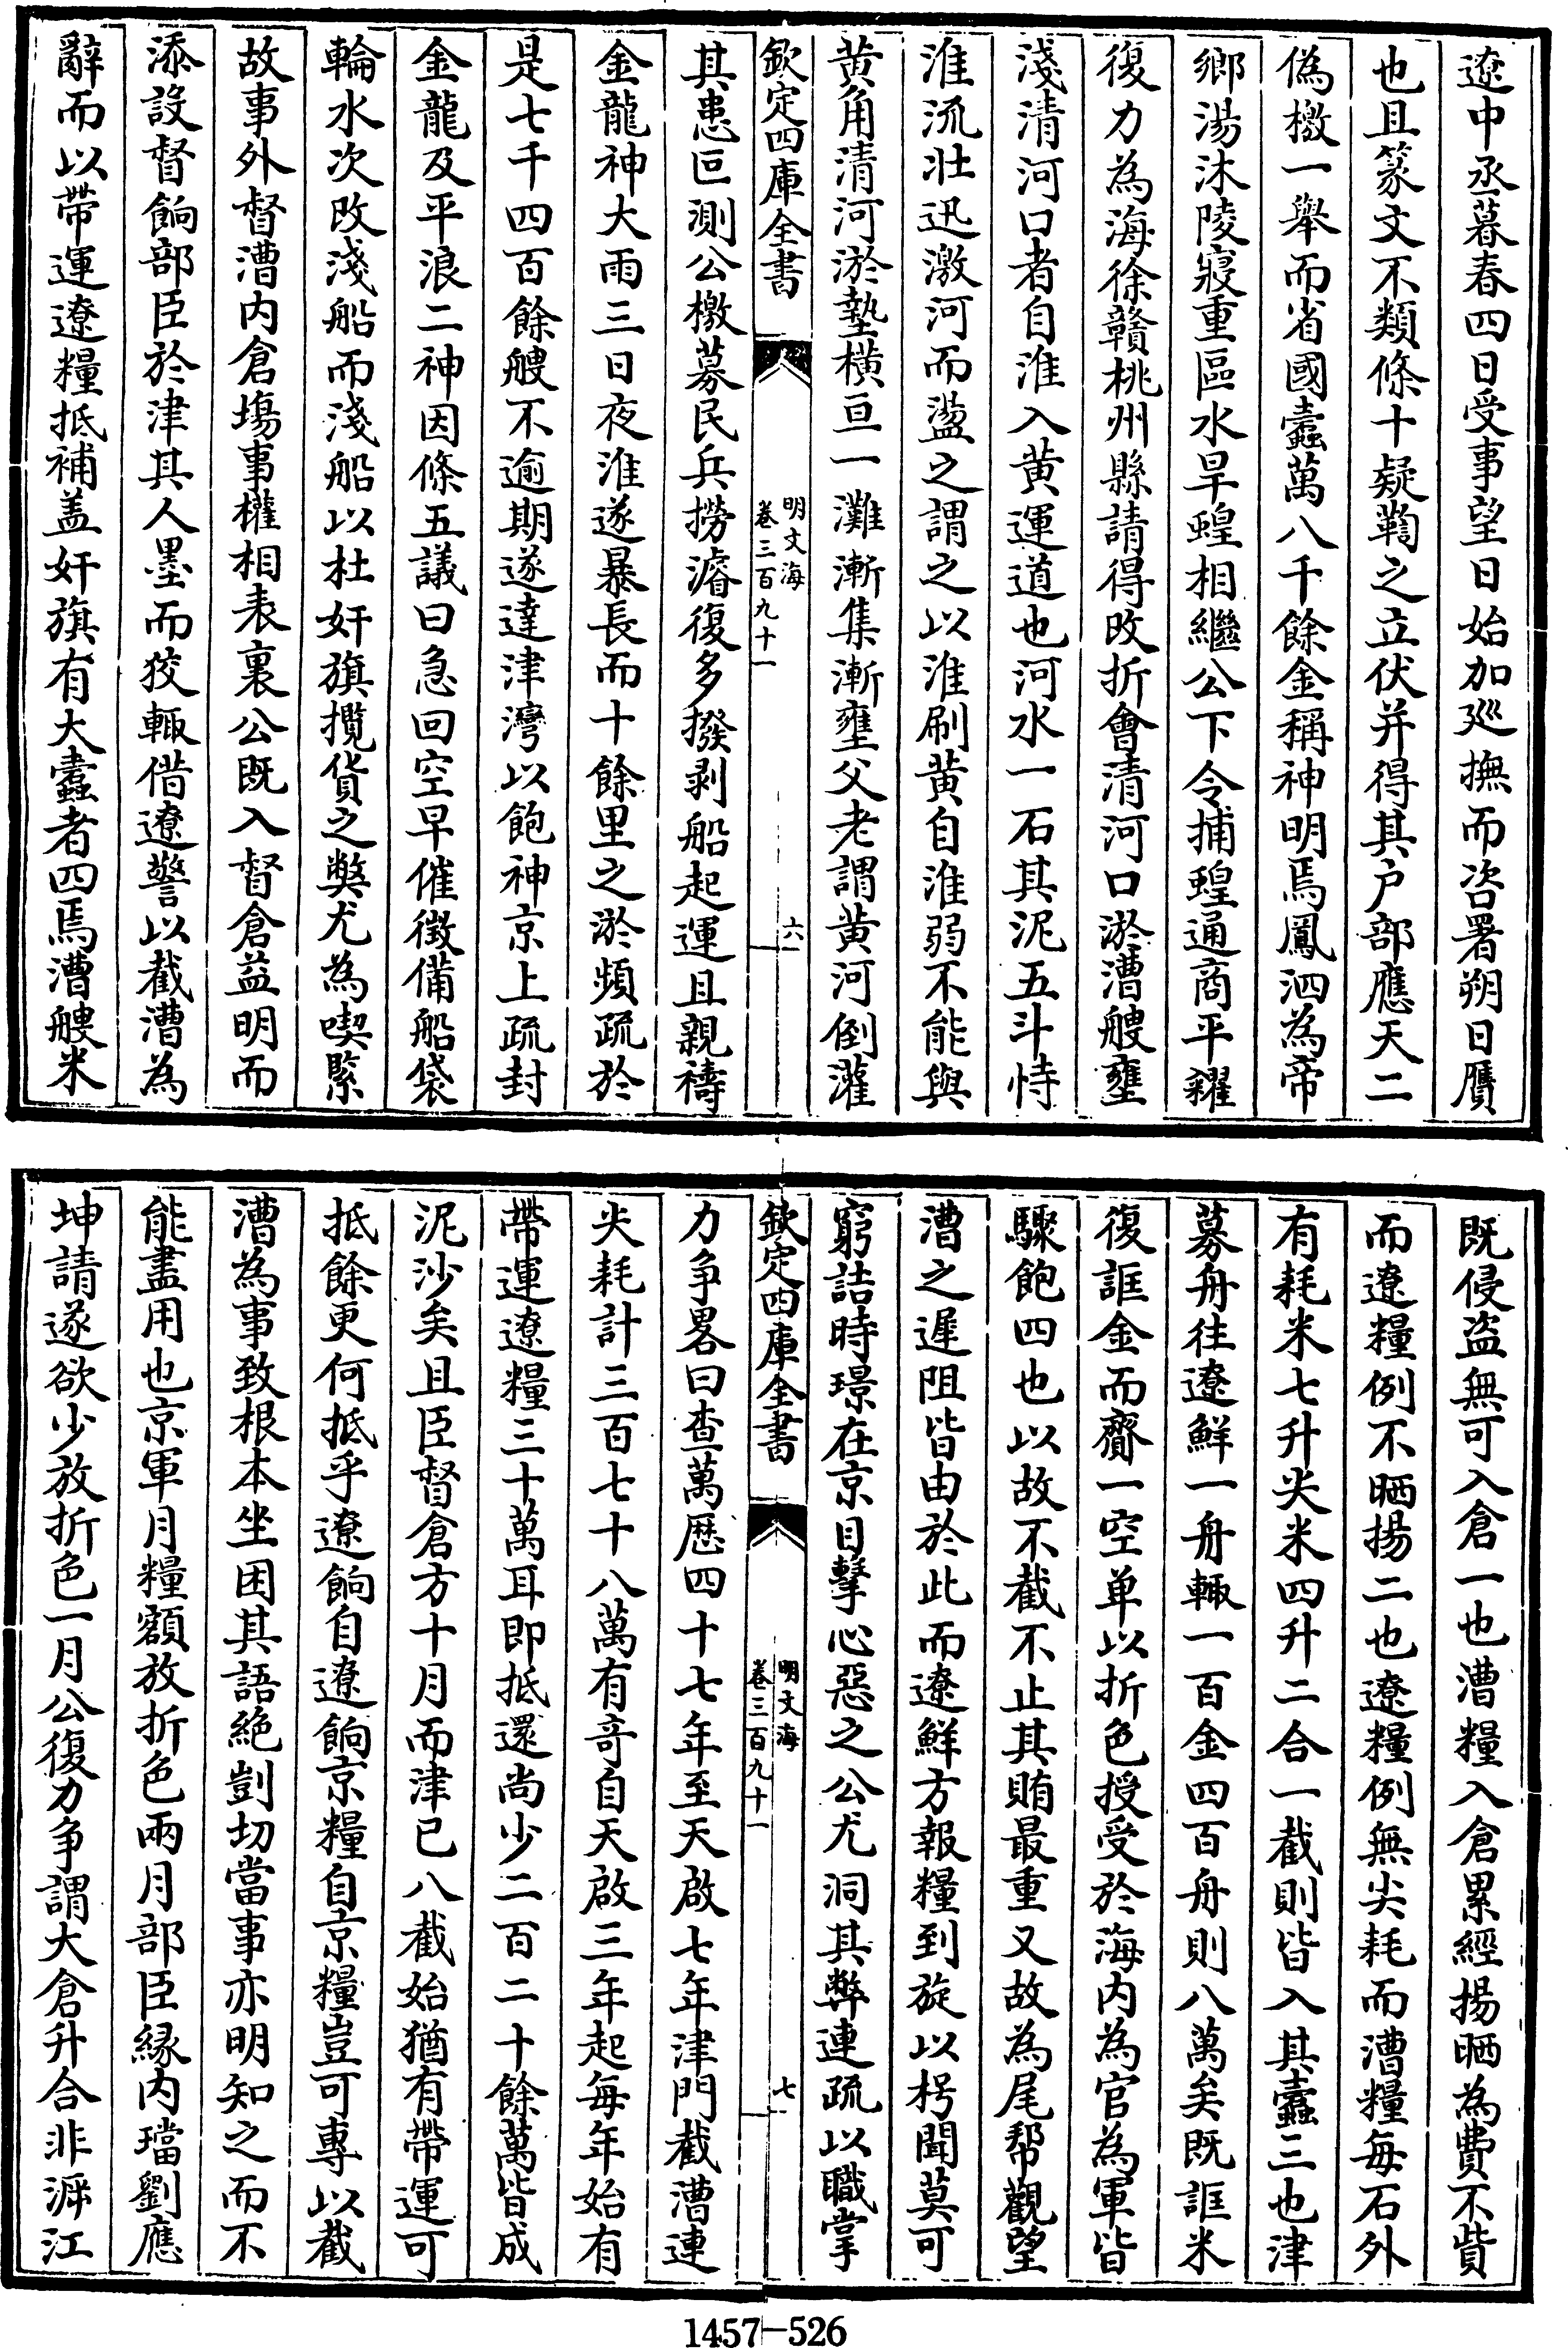 遼中丞暮春四日受事望日始加廵撫而咨署朔日贗
也且篆文不類條十疑鞫之立伏并得其户部應天二
偽檄一舉而省國蠧萬八千餘金稱神明焉鳳泗為帝
鄉湯沐陵寢重區水旱蝗相繼公下令捕蝗通商平糴
復力為海徐贛桃州縣請得改折會清河口淤漕艘壅
淺清河口者自淮入黄運道也河水一石其泥五斗恃
淮流壯迅激河而盪之謂之以淮刷黄自淮弱不能與
黄角清河淤墊橫亘一灘漸集漸壅父老謂黄河倒灌
欽定四庫全書
明文海
卷三百九十一
六
其患叵測公檄募民兵撈濬復多撥剥船起運且親禱
金龍神大雨三日夜淮遂暴長而十餘里之淤頻疏於
是七千四百餘艘不逾期遂達津灣以飽神京上疏封
金龍及平浪二神因條五議曰急回空早催徵備船袋
輪水次改淺船而淺船以杜奸旗攬貨之獘尤為喫緊
故事外督漕内倉塲事權相表裏公既入督倉益明而
添設督餉部臣於津其人墨而狡輒借遼警以截漕為
辭而以帶運遼糧抵補盖奸旗有大蠧者四焉漕艘米
既侵盜無可入倉一也漕糧入倉累經揚晒為費不貲
而遼糧例不晒揚二也遼糧例無尖耗而漕糧每石外
有耗米七升尖米四升二合一截則皆入其蠧三也津
募舟往遼鮮一舟輒一百金四百舟則八萬矣既誆米
復誆金而齎一空单以折色授受於海内為官為軍皆
驟飽四也以故不截不止其賄最重又故為尾幇觀望
漕之遲阻皆由於此而遼鮮方報糧到旋以枵聞莫可
窮詰時璟在京目擊心惡之公尤洞其弊連疏以職掌
欽定四庫全書
明文海
卷三百九十一
七
力争畧曰查萬厯四十七年至天啟七年津門截漕連
尖耗計三百七十八萬有竒自天啟三年起每年始有
帶運遼糧三十萬耳即抵還尚少二百二十餘萬皆成
泥沙矣且臣督倉方十月而津已八截始猶有帶運可
抵餘更何抵乎遼餉自遼餉京糧自京糧豈可專以截
漕為事致根本坐困其語絶剴切當事亦明知之而不
能盡用也京軍月糧額放折色兩月部臣縁内璫劉應
坤請遂欲少放折色一月公復力争謂大倉升合非泝江